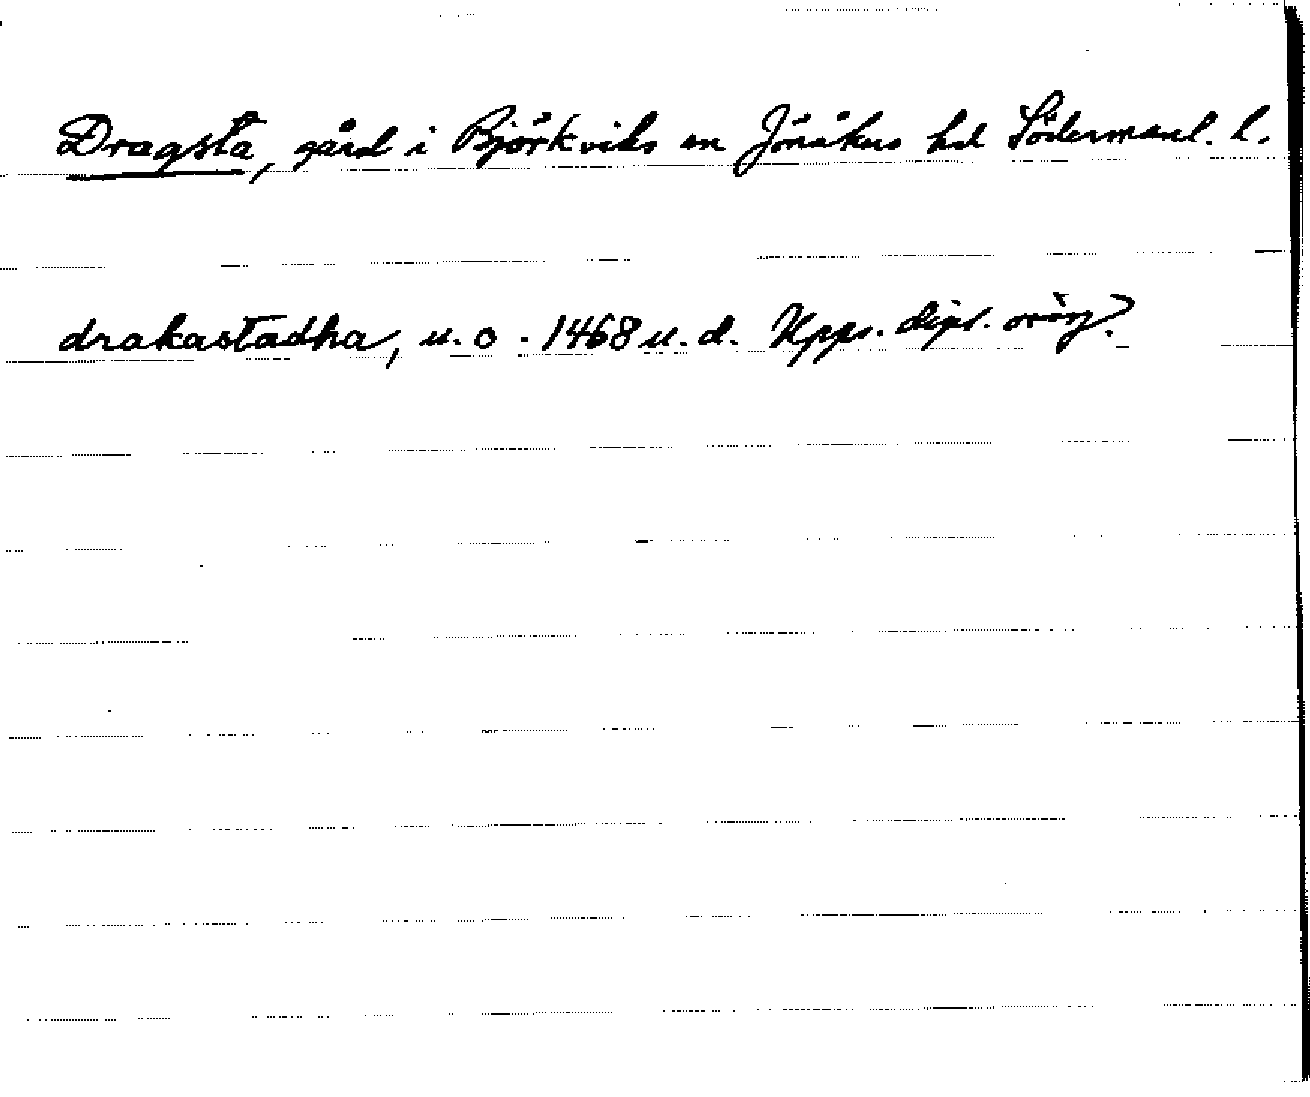 Dragsta, gård i Björkviks sn Jönåkers hd Södermanl. l.
drakastadha, u. o. 1468 u. d. Upps. dipl. orig?